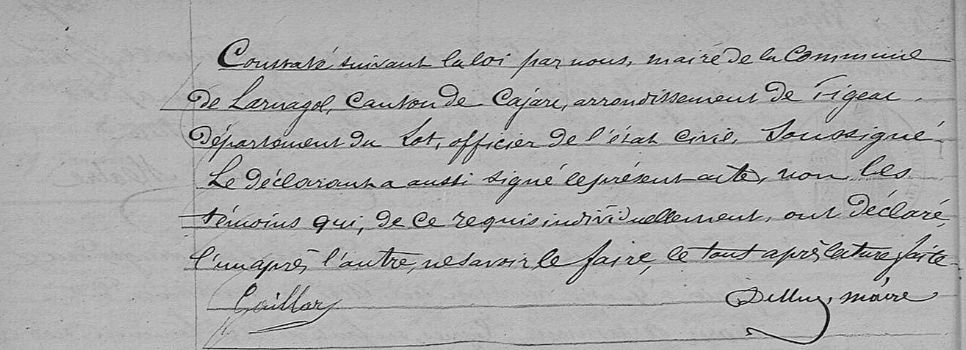 Constaté suivant la loi par nous, maire de la Commune
de Larnagol, Canton de Cajarc, arrondissement de Figeac,
Département du Lot, officier de l'état civil, Soussigné.
Le déclarant a aussi signé le présent acte, non les
témoins qui, de ce requis individuellement, ont déclaré,
l'un après l'autre, ne savoir le faire, le tout après lecture faite
Gaillar maire